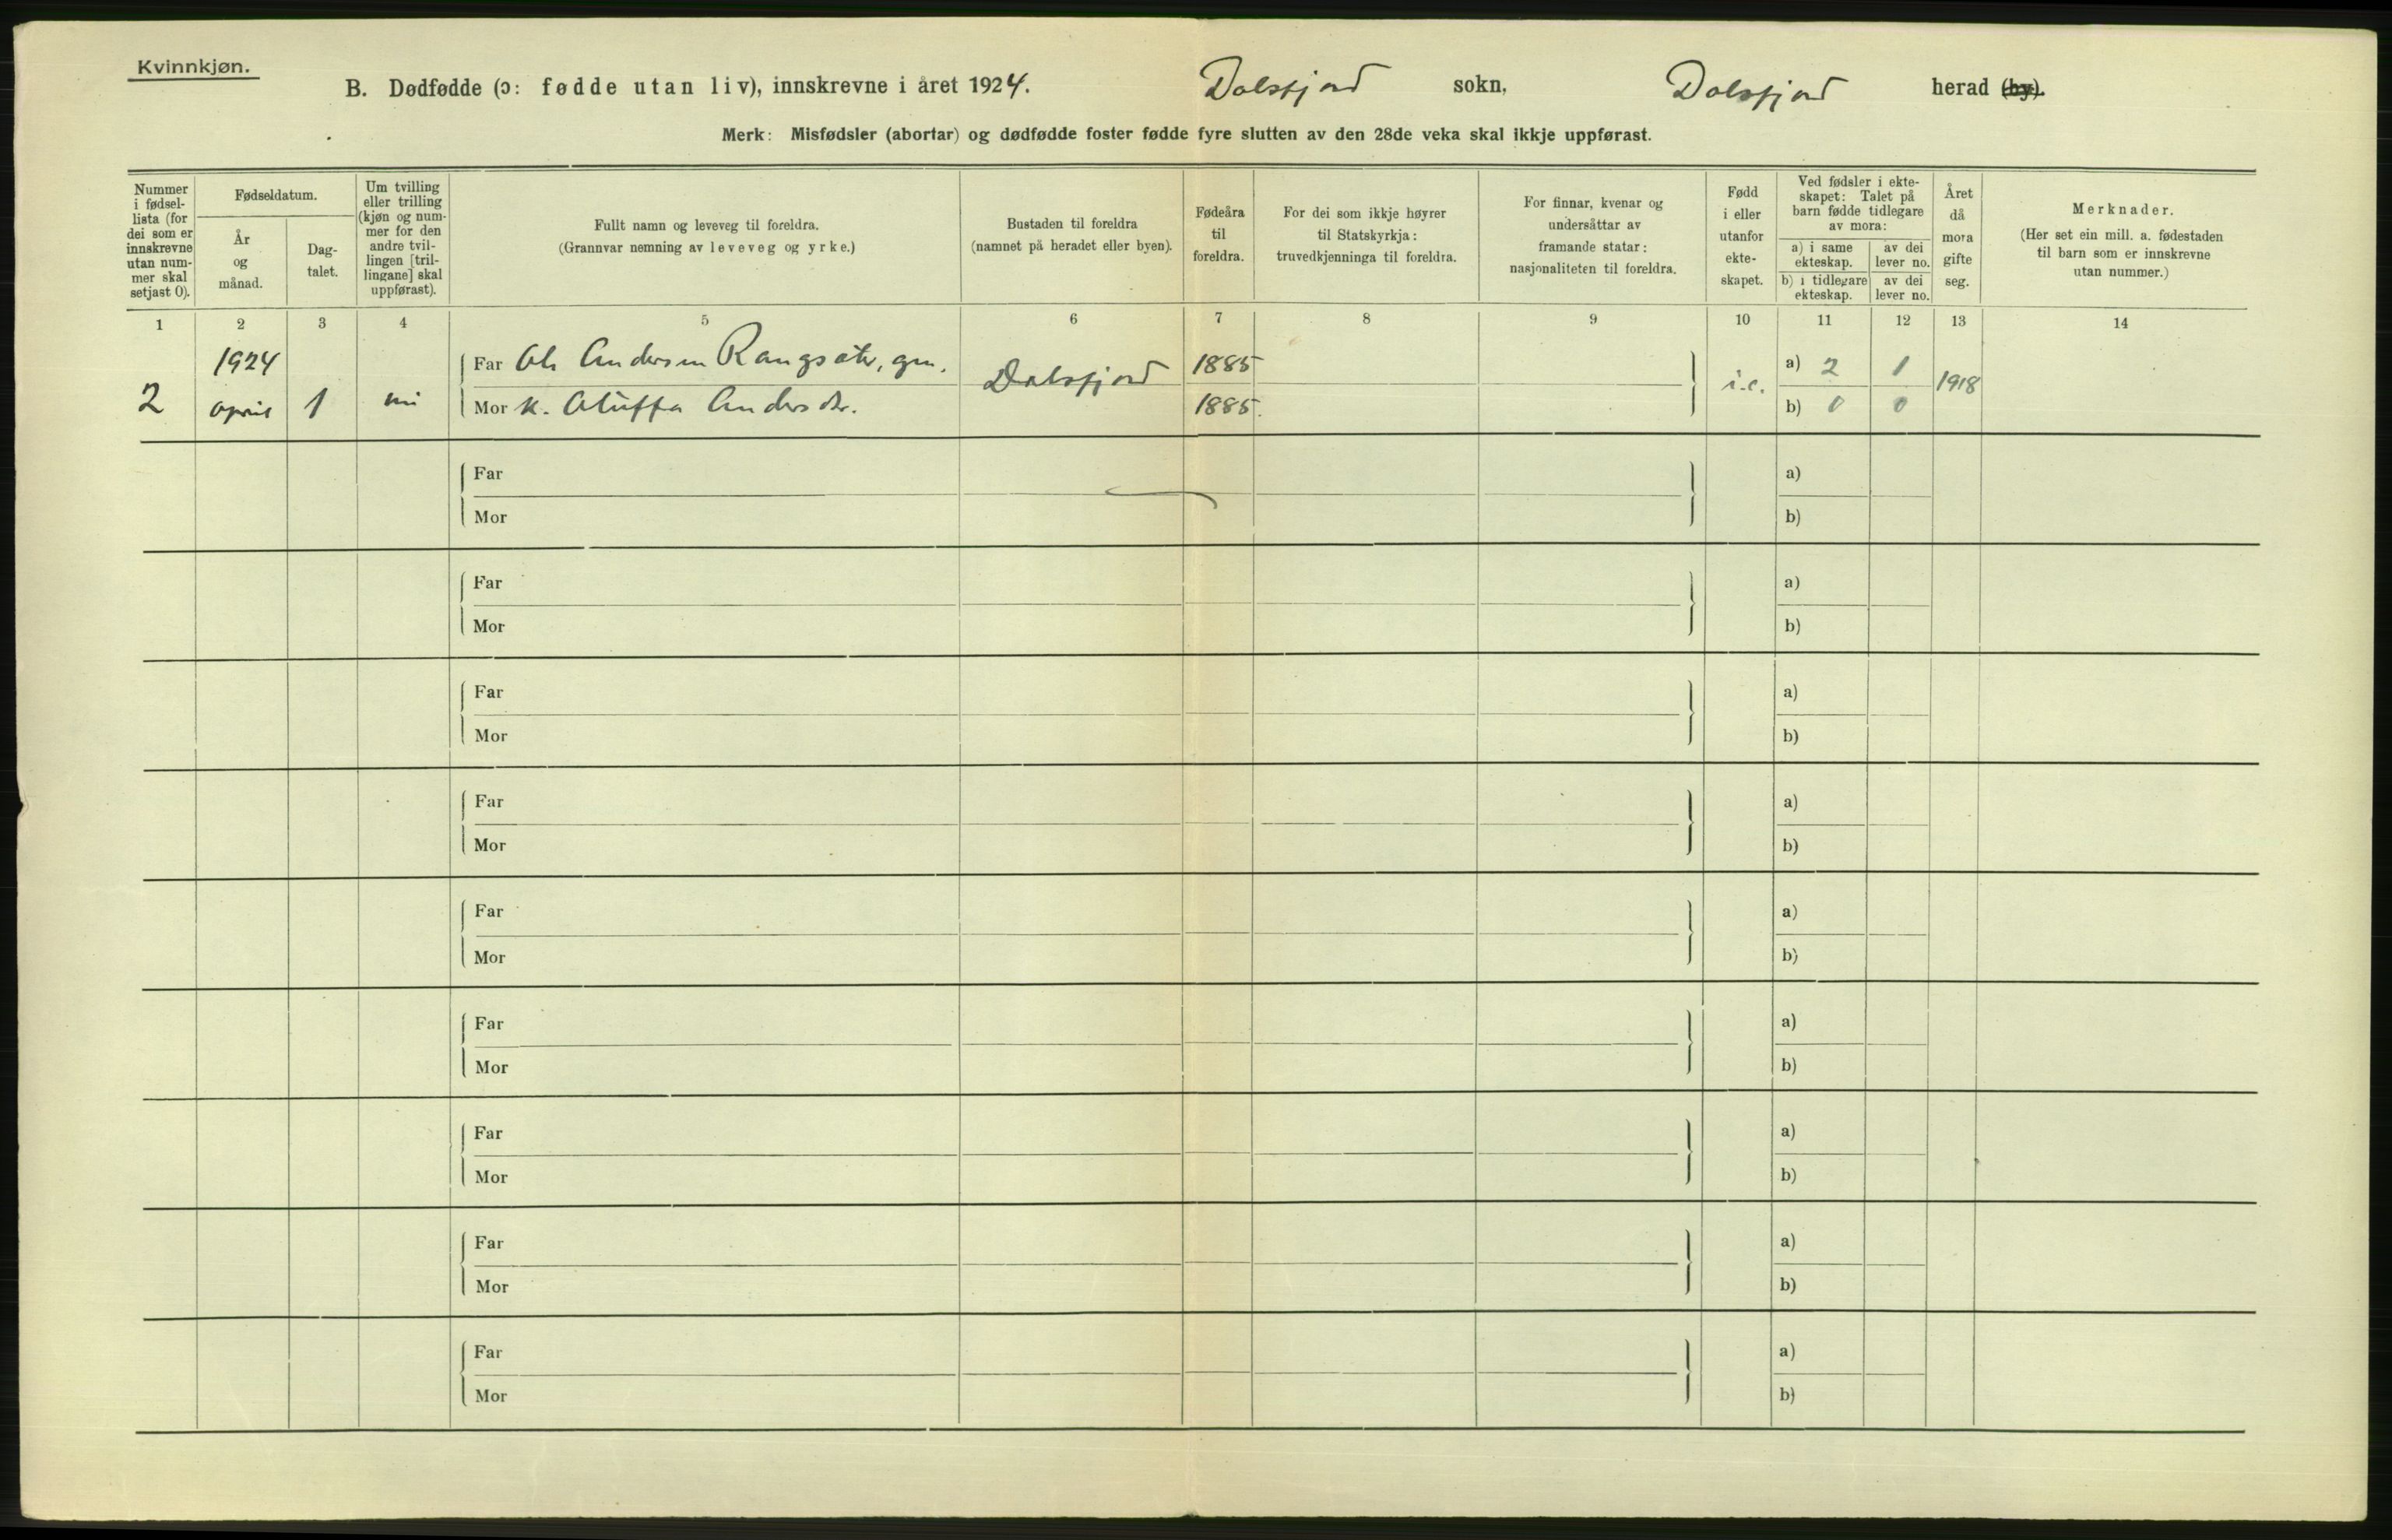 Kvinnkjøn.
B. Dødfødde (ɔ: fødde utan liv), innskrevne i året 1924. Dalsfjord sokn, Dalsfjord herad (by).
Merk: Misfødsler (abortar) og dødfødde foster fødde fyre slutten av den 28de veka skal ikkje uppførast.
Nummer
i fødsel-
lista (for
dei som er
innskrevne
utan num-
mer skal
setjast 0).
Fødseldatum.
År
og
månad.
Dag-
talet.
Um tvilling
eller trilling
(kjøn og num-
mer for den
andre tvil-
lingen [tril-
lingane] skal
uppførast).
Fullt namn og leveveg til foreldra.
(Grannvar nemning av leveveg og yrke.)
Bustaden til foreldra
(namnet på heradet eller byen).
Fødeåra
til
foreldra.
For dei som ikkje høyrer
til Statskyrkja:
truvedkjenninga til foreldra.
For finnar, kvenar og
undersåttar av
framande statar:
nasjonaliteten til foreldra.
Fødd
i eller
utanfor
ekte-
skapet.
Ved fødsler i ekte-
skapet: Talet på
barn fødde tidlegare
av mora:
a) i same
ekteskap.
av dei
lever no.
b) i tidlegare
ekteskap.
av dei
lever no.
Året
då
mora
gifte
seg.
Merknader.
(Her set ein mill. a. fødestaden
til barn som er innskrevne
utan nummer.)
1 2 3 4 5 6 7 8 9 10 11 12 13 14
1924 Far Ole Andersen Rangsæter, gm. 1885 a) 2 1
2 april 1 Dalsfjord i.e. 1918
Mor K. Anders dr. 1885. b) 0 0
Far a)
Mor b)
Far a)
Mor b)
Far a)
Mor b)
Far a)
Mor b)
Far a)
Mor b)
Far a)
Mor b)
Far a)
Mor b)
Far a)
Mor b)
Far a)
Mor b)